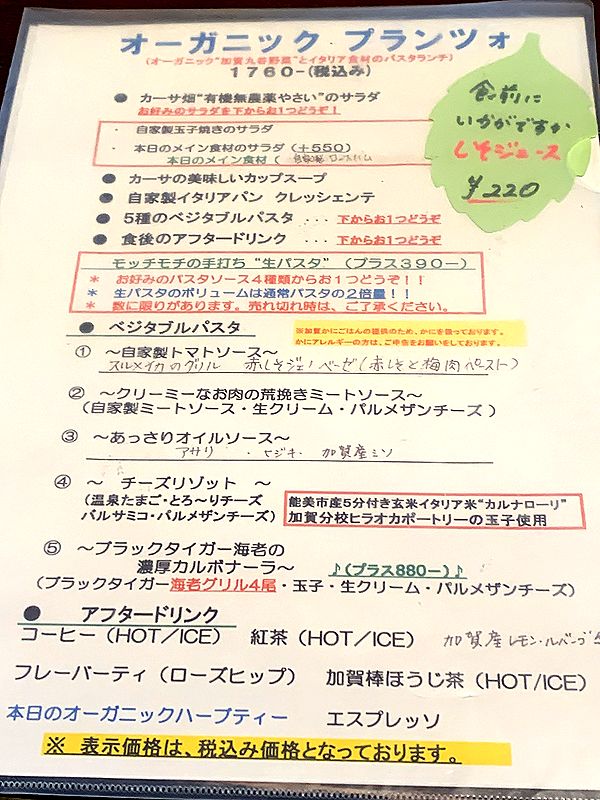 オーガニック プランツォ
(オーガニック"加賀九谷野菜"とイタリア食材のパスタランチ)
1760-(税込み)
食前に
いかがですか
しそジュース
¥220
● カーサ畑"有機無農薬やさい"のサラダ
お好みのサラダを下からお1つどうぞ!
・ 自家製玉子焼きのサラダ
・ 本日のメイン食材のサラダ(+550)
本日のメイン食材( 自家製 ロースハム
● カーサの美味しいカップスープ
● 自家製イタリアパン クレッシェンテ
● 5種のベジタブルパスタ ... 下からお1つどうぞ
● 食後のアフタードリンク ... 下からお1つどうぞ
モッチモチの手打ち"生パスタ"(プラス390-)
* お好みのパスタソース4種類からお1つどうぞ!!
* 生パスタのボリュームは通常パスタの2倍量!!
* 数に限りがあります。売れ切れ時は、ご了承ください。
● ベジタブルパスタ
※加賀かにごはんの提供のため、かにを扱っております。
かにアレルギーの方は、ご申告をお願いをしております。
① ~自家製トマトソース~
スルメイカのグリル 赤しそジェノベーゼ(赤しそと梅肉ペースト)
② ~クリーミーなお肉の荒挽きミートソース~
(自家製ミートソース・生クリーム・パルメザンチーズ)
③ ~あっさりオイルソース~
アサリ ・ ヒジキ・ 加賀産ミソ
④ ~ チーズリゾット ~
(温泉たまご・とろ~りチーズ
バルサミコ・パルメザンチーズ)
能美市産5分付き玄米イタリア米"カルナローリ"
加賀分校ヒラオカポートリーの玉子使用
⑤ ~ブラックタイガー海老の
濃厚カルボナーラ~ ♪(プラス880-)♪
(ブラックタイガー海老グリル4尾・玉子・生クリーム・パルメザンチーズ)
● アフタードリンク
コーヒー(HOT/ICE) 紅茶(HOT/ICE) 加賀産レモン・ルバーブ
フレーバーティ(ローズヒップ) 加賀棒ほうじ茶(HOT/ICE)
本日のオーガニックハーブティー エスプレッソ
※ 表示価格は、税込み価格となっております。